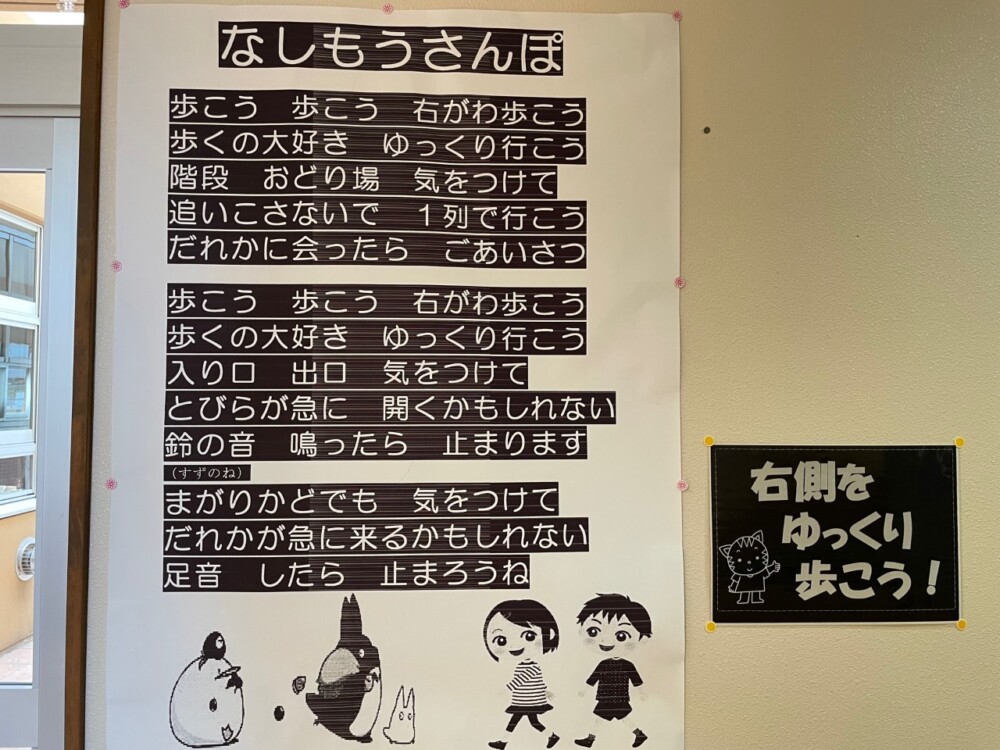 なしもうさんぽ
歩こう　歩こう　右がわ歩こう
歩くの大好き　ゆっくり行こう
階段　おどり場　気をつけて
追いこさないで　１列で行こう
だれかに会ったら　ごあいさつ
歩こう　歩こう　右がわ歩こう
歩くの大好き　ゆっくり行こう
入り口　出口　気をつけて
とびらが急に　開くかもしれない
鈴の音　鳴ったら　止まります
（すずのね）
まがりかどでも　気をつけて
だれかが急に来るかもしれない
足音　したら　止まろうね
右側を
ゆっくり
歩こう！